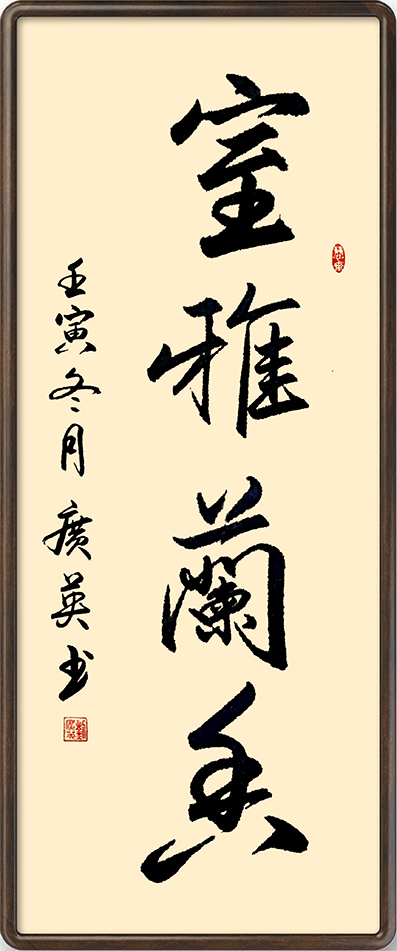 室雅蘭香
壬寅冬月廣英书